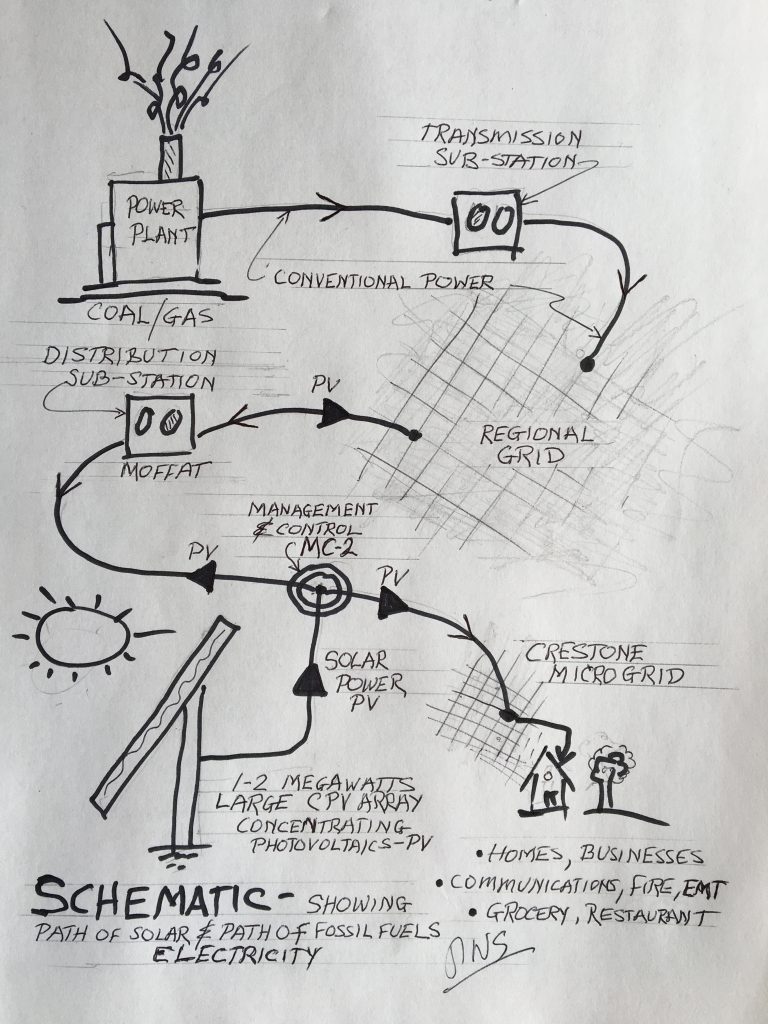 TRANSMISSION
SUB-STATION
POWER
PLANT
CONVENTIONAL POWER
COAL/GAS
DISTRIBUTION
SUB-STATION
PV
MOFFAT
REGIONAL
GRID
MANAGEMENT
& CONTROL
MC-2
PV
PV
SOLAR
POWER,
PV
CRESTONE
MICROGRID
1-2 MEGAWATTS
LARGE CPV ARRAY
CONCENTRATING
PHOTOVOLTAICS-PV
• HOMES, BUSINESSES
• COMMUNICATIONS, FIRE, EMT
• GROCERY, RESTAURANT
SCHEMATIC- SHOWING
PATH OF SOLAR & PATH OF FOSSIL FUELS
ELECTRICITY